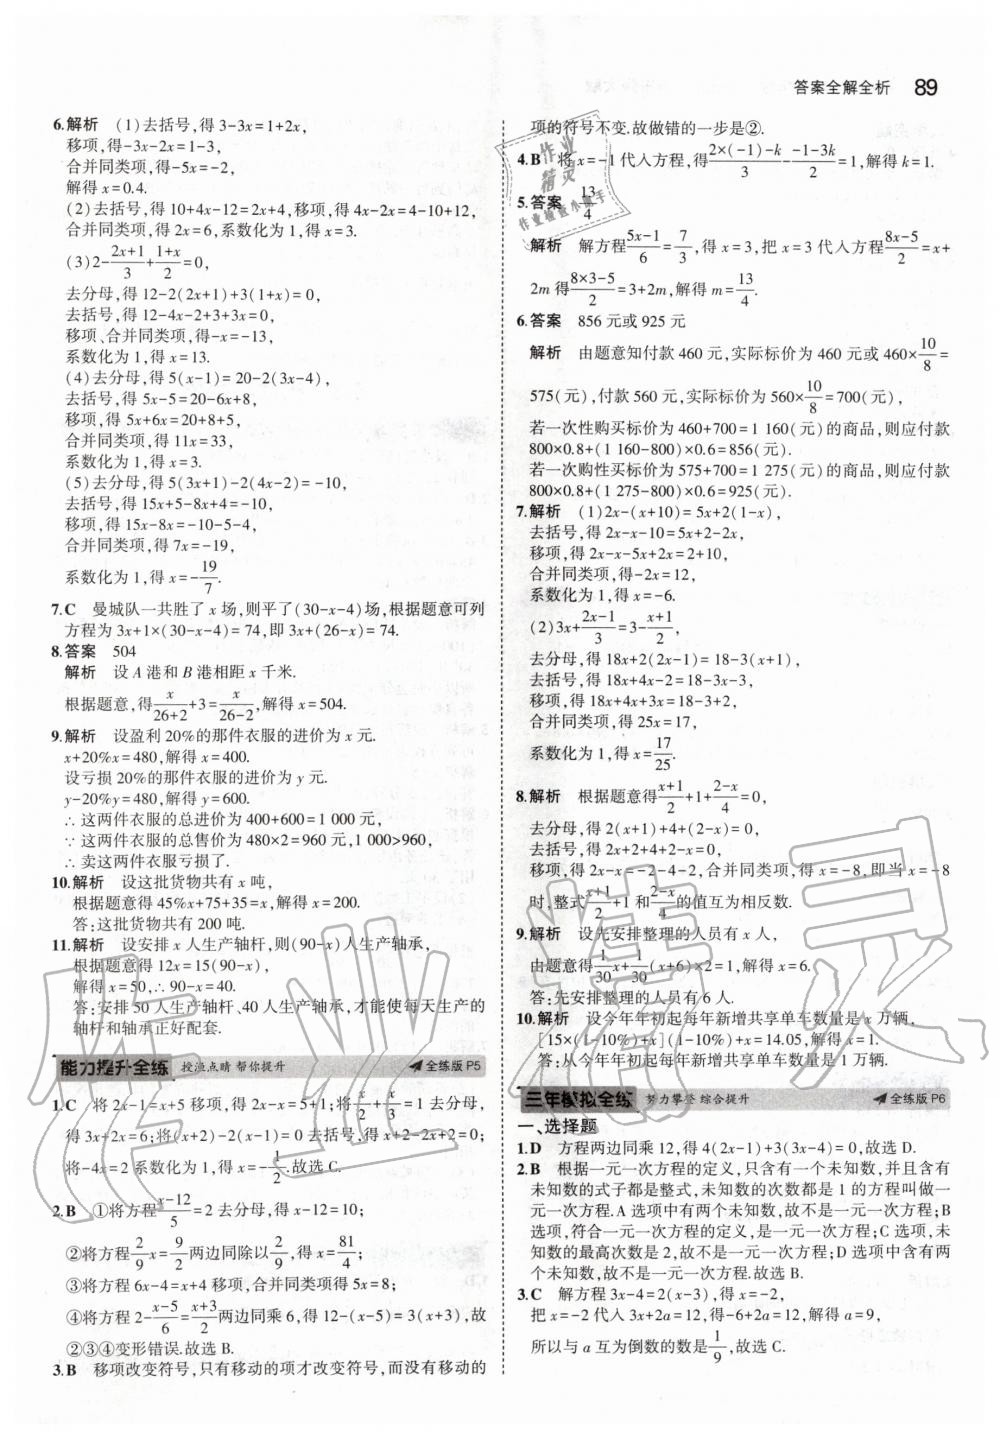 答案全解全析 89
6.解析 (1)去括号,得 3-3x=1+2x,
移项,得-3x-2x=1-3,
合并同类项,得-5x=-2,
解得 x=0.4.
(2)去括号,得 10+4x-12=2x+4,移项,得 4x-2x=4-10+12,
合并同类项,得 2x=6,系数化为 1,得 x=3.
(3)2-\frac{2x+1}{3}+\frac{1+x}{2}=0,
去分母,得 12-2(2x+1)+3(1+x)=0,
去括号,得 12-4x-2+3+3x=0,
移项、合并同类项,得-x=-13,
系数化为 1,得 x=13.
(4)去分母,得 5(x-1)=20-2(3x-4),
去括号,得 5x-5=20-6x+8,
移项,得 5x+6x=20+8+5,
合并同类项,得 11x=33,
系数化为 1,得 x=3.
(5)去分母,得 5(3x+1)-2(4x-2)=-10,
去括号,得 15x+5-8x+4=-10,
移项,得 15x-8x=-10-5-4,
合并同类项,得 7x=-19,
系数化为 1,得 x=-\frac{19}{7}.
7.C 曼城队一共胜了 x 场,则平了(30-x-4)场,根据题意可列
方程为 3x+1×(30-x-4)=74,即 3x+(26-x)=74.
8.答案 504
解析 设 A 港和 B 港相距 x 千米.
根据题意,得\frac{x}{26+2}+3=\frac{x}{26-2},解得 x=504.
9.解析 设盈利 20%的那件衣服的进价为 x 元.
x+20%x=480,解得 x=400.
设亏损 20%的那件衣服的进价为 y 元.
y-20%y=480,解得 y=600.
∴ 这两件衣服的总进价为 400+600=1 000 元,
∵ 这两件衣服的总售价为 480×2=960 元,1 000>960,
∴ 卖这两件衣服亏损了.
10.解析 设这批货物共有 x 吨,
根据题意得 45%x+75+35=x,解得 x=200.
答:这批货物共有 200 吨.
11.解析 设安排 x 人生产轴杆,则(90-x)人生产轴承,
根据题意得 12x=15(90-x),
解得 x=50,∴ 90-x=40.
答:安排 50 人生产轴杆、40 人生产轴承,才能使每天生产的
轴杆和轴承正好配套.
能力提升全练 授渔点睛 帮你提升 全练版 P5
1.C 将 2x-1=x+5 移项,得 2x-x=5+1;将\frac{x}{2}+\frac{x}{3}=1 去分母,
得 3x+2x=6;将 4(x+2)-2(x-1)=0 去括号,得 4x+8-2x+2=0;
将-4x=2 系数化为 1,得 x=-\frac{1}{2}.故选 C.
2.B ①将方程\frac{x-12}{5}=2 去分母,得 x-12=10;
②将方程\frac{2}{9}x=\frac{9}{2}两边同除以\frac{2}{9},得 x=\frac{81}{4};
③将方程 6x-4=x+4 移项,合并同类项得 5x=8;
④将方程 2-\frac{x-5}{6}=\frac{x+3}{2}两边同乘 6,得 12-(x-5)=3(x+3),故
②③④变形错误.故选 B.
3.B 移项改变符号,只有移动的项才改变符号,而没有移动的
项的符号不变.故做错的一步是②.
4.B 将 x=-1 代入方程,得\frac{2×(-1)-k}{3}-\frac{-1-3k}{2}=1,解得 k=1.
5.答案 \frac{13}{4}
解析 解方程\frac{5x-1}{6}=\frac{7}{3},得 x=3,把 x=3 代入方程\frac{8x-5}{2}=x+
2m 得\frac{8×3-5}{2}=3+2m,解得 m=\frac{13}{4}.
6.答案 856 元或 925 元
解析 由题意知付款 460 元,实际标价为 460 元或 460×\frac{10}{8}=
575(元),付款 560 元,实际标价为 560×\frac{10}{8}=700(元),
若一次性购买标价为 460+700=1 160(元)的商品,则应付款
800×0.8+(1 160-800)×0.6=856(元).
若一次购性买标价为 575+700=1 275(元)的商品,则应付款
800×0.8+(1 275-800)×0.6=925(元).
7.解析 (1)2x-(x+10)=5x+2(1-x),
去括号,得 2x-x-10=5x+2-2x,
移项,得 2x-x-5x+2x=2+10,
合并同类项,得-2x=12,
系数化为 1,得 x=-6.
(2)3x+\frac{2x-1}{3}=3-\frac{x+1}{2},
去分母,得 18x+2(2x-1)=18-3(x+1),
去括号,得 18x+4x-2=18-3x-3,
移项,得 18x+4x+3x=18-3+2,
合并同类项,得 25x=17,
系数化为 1,得 x=\frac{17}{25}.
8.解析 根据题意得\frac{x+1}{2}+1+\frac{2-x}{4}=0,
去分母,得 2(x+1)+4+(2-x)=0,
去括号,得 2x+2+4+2-x=0,
移项,得 2x-x=-2-4-2,合并同类项,得 x=-8,即当 x=-8
时,整式\frac{x+1}{2}+1 和\frac{2-x}{4}的值互为相反数.
9.解析 设先安排整理的人员有 x 人,
由题意得\frac{1}{30}x+\frac{1}{30}(x+6)×2=1,解得 x=6.
答:先安排整理的人员有 6 人.
10.解析 设今年年初起每年新增共享单车数量是 x 万辆.
[15×(1-10%)+x](1-10%)+x=14.05,解得 x=1.
答:从今年年初起每年新增共享单车数量是 1 万辆.
三年模拟全练 努力攀登 综合提升 全练版 P6
一、选择题
1.D 方程两边同乘 12,得 4(2x-1)+3(3x-4)=0,故选 D.
2.B 根据一元一次方程的定义,只含有一个未知数,并且含有
未知数的式子都是整式,未知数的次数都是 1 的方程叫做一
元一次方程.A 选项中有两个未知数,故不是一元一次方程;B
选项,符合一元一次方程的定义,是一元一次方程;C 选项,未
知数的最高次数是 2,故不是一元一次方程;D 选项中含有两
个未知数,故不是一元一次方程.故选 B.
3.C 解方程 3x-4=2(x-3),得 x=-2,
把 x=-2 代入 3x+2a=12,得-6+2a=12,解得 a=9,
所以与 a 互为倒数的数是\frac{1}{9},故选 C.
作业
精灵
作业检查小帮手
作业精灵